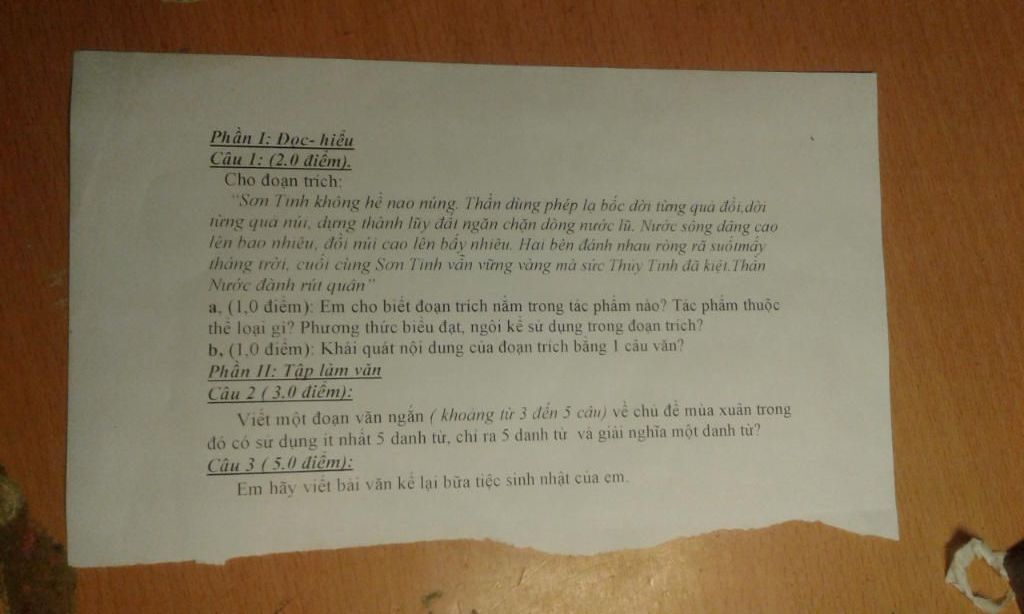 Phần I: Đọc- hiểu
Câu 1: (2.0 điểm).
Cho đoạn trích:
"Sơn Tinh không hề nao núng. Thần dùng phép lạ bốc dời từng quả đồi,dời
từng quả núi, dựng thành lũy đất ngăn chặn dòng nước lũ. Nước sông dâng cao
lên bao nhiêu, đồi núi cao lên bấy nhiêu. Hai bên đánh nhau ròng rã suốtmấy
tháng trời, cuối cùng Sơn Tinh vẫn vững vàng mà sức Thủy Tinh đã kiệt.Thần
Nước đành rút quân"
a, (1,0 điểm): Em cho biết đoạn trích nằm trong tác phẩm nào? Tác phẩm thuộc
thể loại gì? Phương thức biểu đạt, ngôi kể sử dụng trong đoạn trích?
b, (1,0 điểm): Khái quát nội dung của đoạn trích bằng 1 câu văn?
Phần II: Tập làm văn
Câu 2 ( 3.0 điểm):
Viết một đoạn văn ngắn ( khoảng từ 3 đến 5 câu) về chủ đề mùa xuân trong
đó có sử dụng ít nhất 5 danh từ, chỉ ra 5 danh từ và giải nghĩa một danh từ?
Câu 3 ( 5.0 điểm):
Em hãy viết bài văn kể lại bữa tiệc sinh nhật của em.